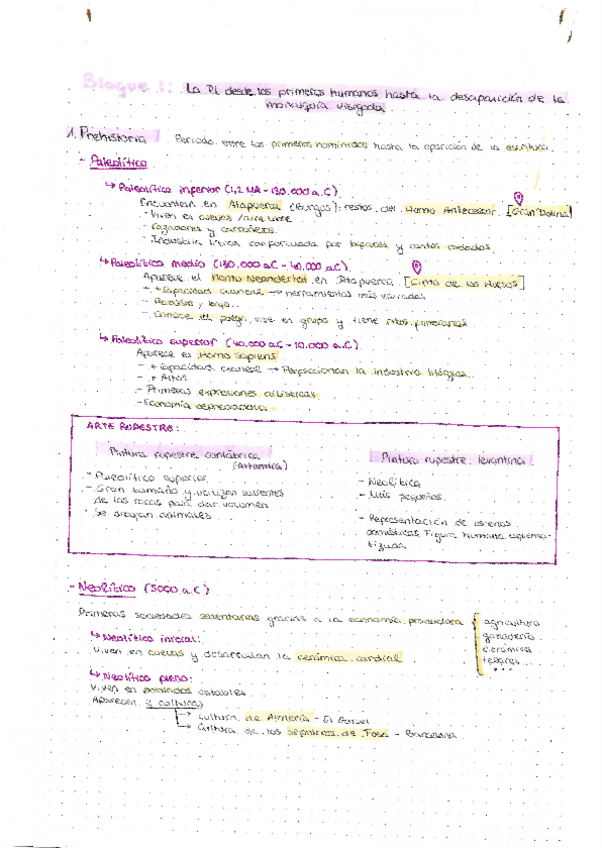 Bloque 1: La P.I. desde los primeros humanos hasta la desaparición de la
monarquía visigoda
1. Prehistoria Periodo entre los primeros homínidos hasta la aparición de la escritura.
- Paleolítico
↳ Paleolítico inferior (1,2 MA - 130.000 a.C)
Encuentran en Atapuerca (Burgos): restos del Homo Antecessor [Gran Dolina]
- Viven en cuevas / aire libre
- Cazadores y carroñeros.
- Industria lítica conformada por bifaces y cantos rodados
↳ Paleolítico medio (130.000 a.C - 40.000 a.C)
Aparece el Homo Neandertal en Atapuerca [Cima de los Huesos]
- + capacidad craneal → herramientas más variadas
- Robusto y bajo.
- Conoce el fuego, vive en grupo y tiene ritos funerarios
↳ Paleolítico superior (40.000 a.C - 10.000 a.C)
Aparece el Homo Sapiens
- + capacidad craneal → Perfeccionan la industria
- + Altos
- Primeras expresiones artísticas
- Economía depredadora
ARTE RUPESTRE:
Pintura rupestre cantábrica
(Altamira)
- Paleolítico superior
- Gran tamaño y utilizan salientes
de las rocas para dar volumen
- Se dibujan animales
Pintura rupestre levantina
- Neolítica
- Más pequeños
- Representación de escenas
domésticas. Figura humana esquema-
tizada
- Neolítico (5000 a.C)
Primeras sociedades sedentarias gracias a la economía productora { agricultura
ganadería
cerámica
telares
...
↳ Neolítico inicial:
Viven en cuevas y desarrollan la cerámica cardial
↳ Neolítico pleno:
Viven en poblados estables
Aparecen 2 culturas
→ Cultura de Almería - El Garcel
→ Cultura de los sepulcros de Fosa - Barcelona